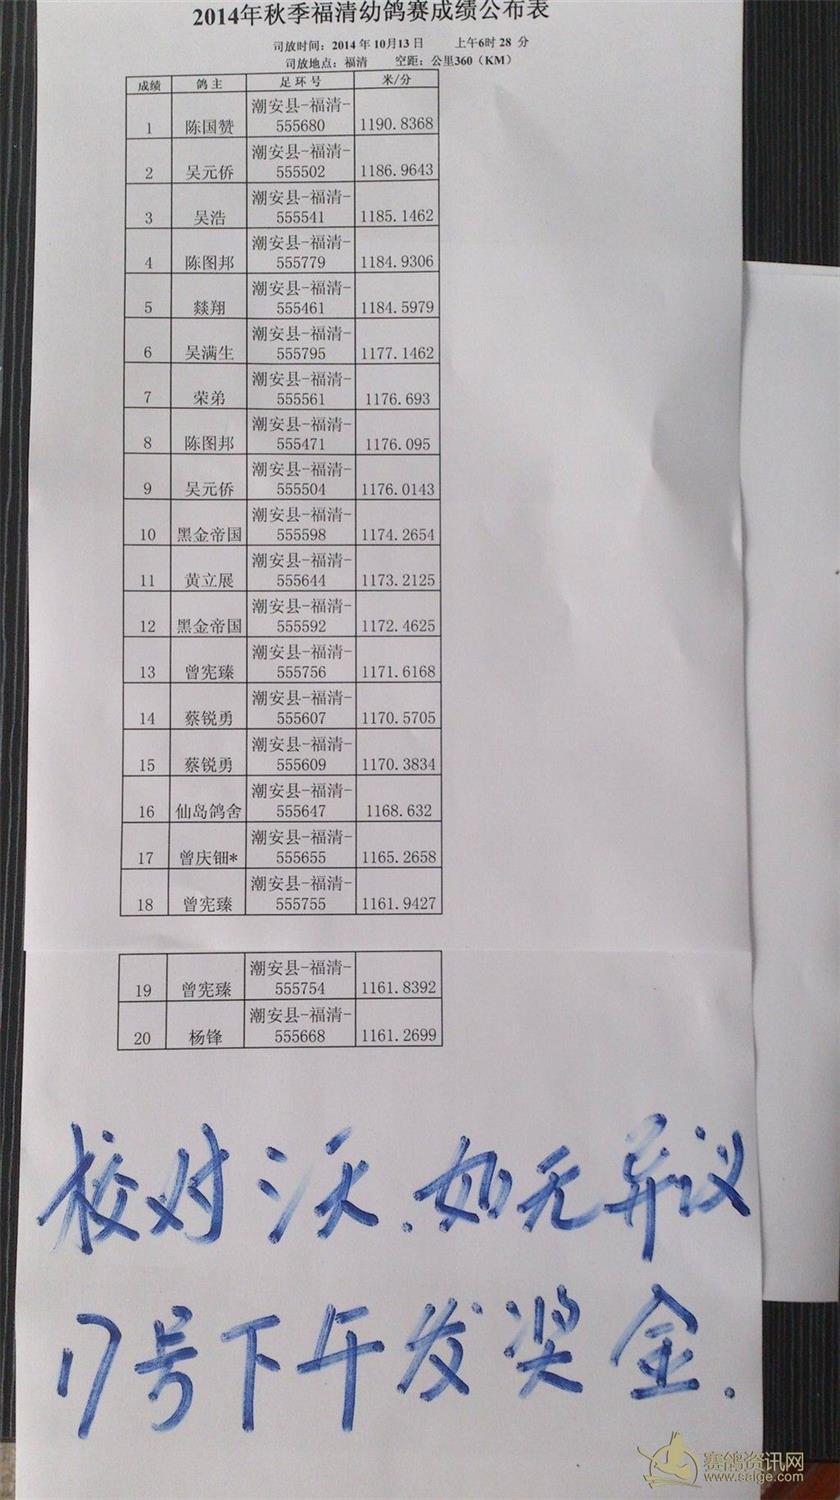 2014年秋季福清幼鸽赛成绩公布表
司放时间：2014 年 10月13 日 上午6时 28 分
司放地点：福清 空距：公里360（KM）
成绩 鸽 主 足 环 号 米/分
潮安县-福清-
1 陈国赞 555680 1190.8368
潮安县-福清-
2 吴元侨 555502 1186.9643
潮安县-福清-
3 吴浩 555541 1185.1462
潮安县-福清-
4 陈图邦 555779 1184.9306
潮安县-福清-
5 燚翔 555461 1184.5979
潮安县-福清-
6 吴满生 555795 1177.1462
潮安县-福清-
7 荣弟 555561 1176.693
潮安县-福清-
8 陈图邦 555471 1176.095
潮安县-福清-
9 吴元侨 555504 1176.0143
潮安县-福清-
10 黑金帝国 555598 1174.2654
潮安县-福清-
11 黄立展 555644 1173.2125
潮安县-福清-
12 黑金帝国 555592 1172.4625
潮安县-福清-
13 曾宪臻 555756 1171.6168
潮安县-福清-
14 蔡锐勇 555607 1170.5705
潮安县-福清-
15 蔡锐勇 555609 1170.3834
潮安县-福清-
16 仙岛鸽舍 555647 1168.632
潮安县-福清-
17 曾庆钿* 555655 1165.2658
潮安县-福清-
18 曾宪臻 555755 1161.9427
潮安县-福清-
19 曾宪臻 555754 1161.8392
潮安县-福清-
20 杨锋 555668 1161.2699
校对 如无异议
17号下午发奖金.
赛鸽资讯网
www.saige.com